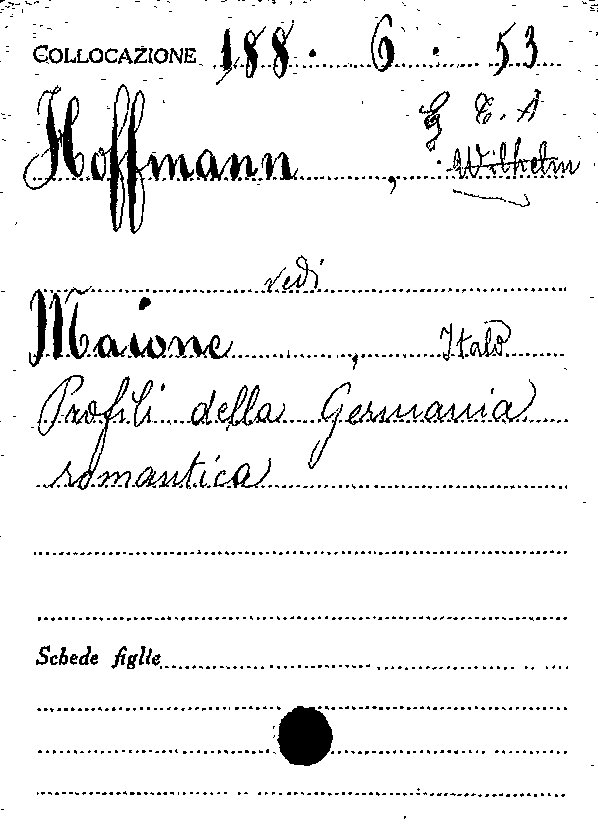 COLLOCAZIONE 188. 6. 53
Hoffmann, E. A
Wilhelm
vedi
Maione, Italo
Profili della Germania
romantica
Schede figlie